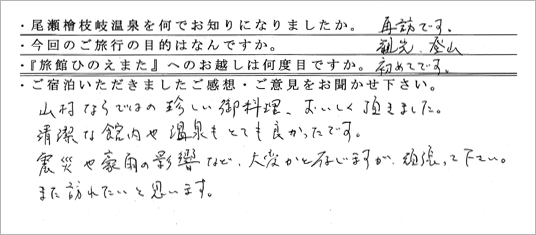 ・尾瀬檜枝岐温泉を何でお知りになりましたか。 再訪です。
・今回のご旅行の目的はなんですか。 観光、登山
・『旅館ひのえまた』へのお越しは何度目ですか。 初めてです。
・ご宿泊いただきましたご感想・ご意見をお聞かせ下さい。
山村ならではの珍しい御料理、おいしく頂きました。
清潔な館内や温泉もとても良かったです。
震災や豪雨の影響など、大変かと存じますが、頑張って下さい。
また訪れたいと思います。